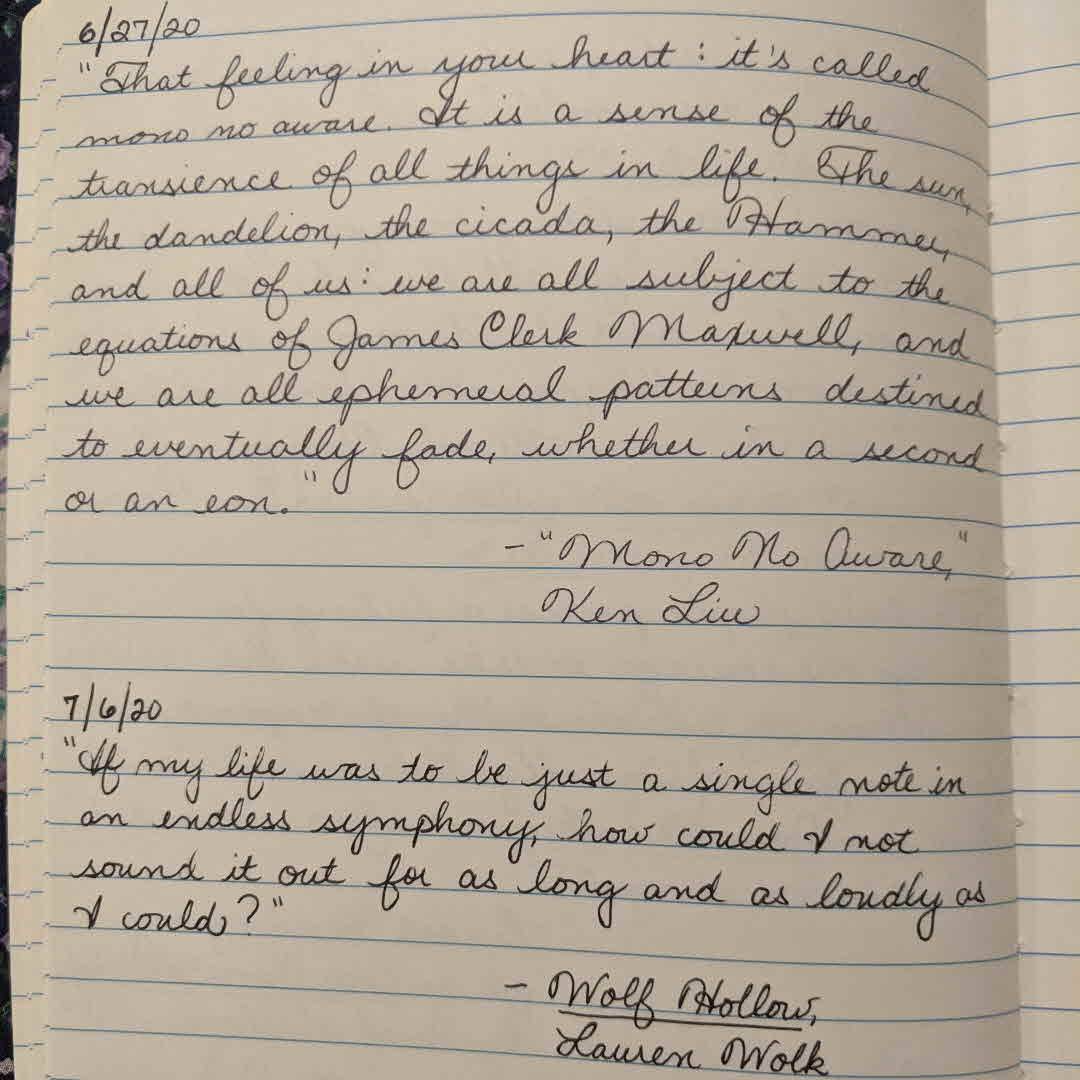 6/27/20
"That feeling in your heart: it's called
mono no aware. It is a sense of the
transience of all things in life. The sun,
the dandelion, the cicada, the Hammer,
and all of us: we are all subject to the
equations of James Clerk Maxwell, and
we are all ephemeral patterns destined
to eventually fade, whether in a second
or an eon."
- "Mono No Aware,"
Ken Liu
7/6/20
"If my life was to be just a single note in
an endless symphony, how could I not
sound it out for as long and as loudly as
I could?"
- Wolf Hollow,
Lauren Wolk